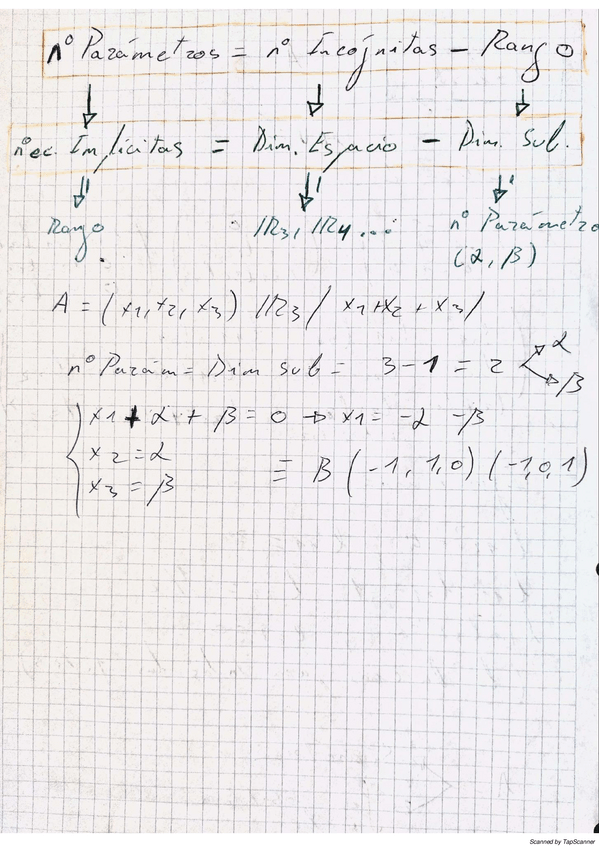 nº Parámetros = nº Incógnitas - Rango
nº ec. Implícitas = Dim. Espacio - Dim. Sub.
Rango IR3, IR4 ... nº Parámetro
(α, β)
A = (x1, x2, x3) IR3 / x1+x2+x3/
nº Parám = Dim sub = 3-1 = 2 α
β
x1 + α + β = 0 → x1 = -α -β
x2 = α
≡ B (-1, 1, 0) (-1, 0, 1)
x3 = β
Scanned by TapScanner